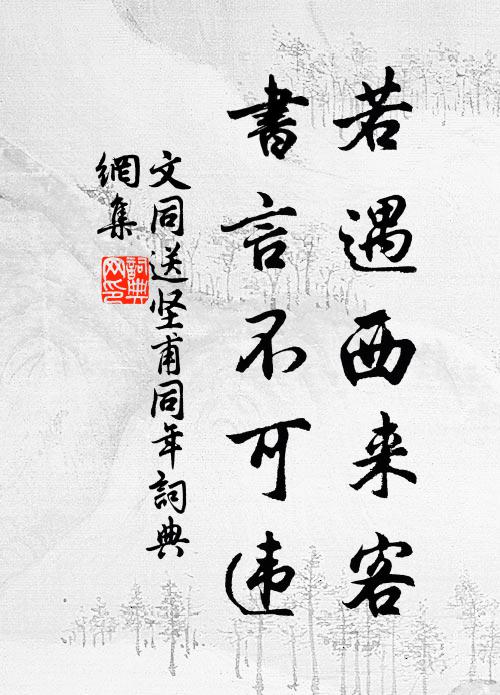 若遇西来客
書言不可违
文同送坚甫同年詞典
網集
詞典
网印